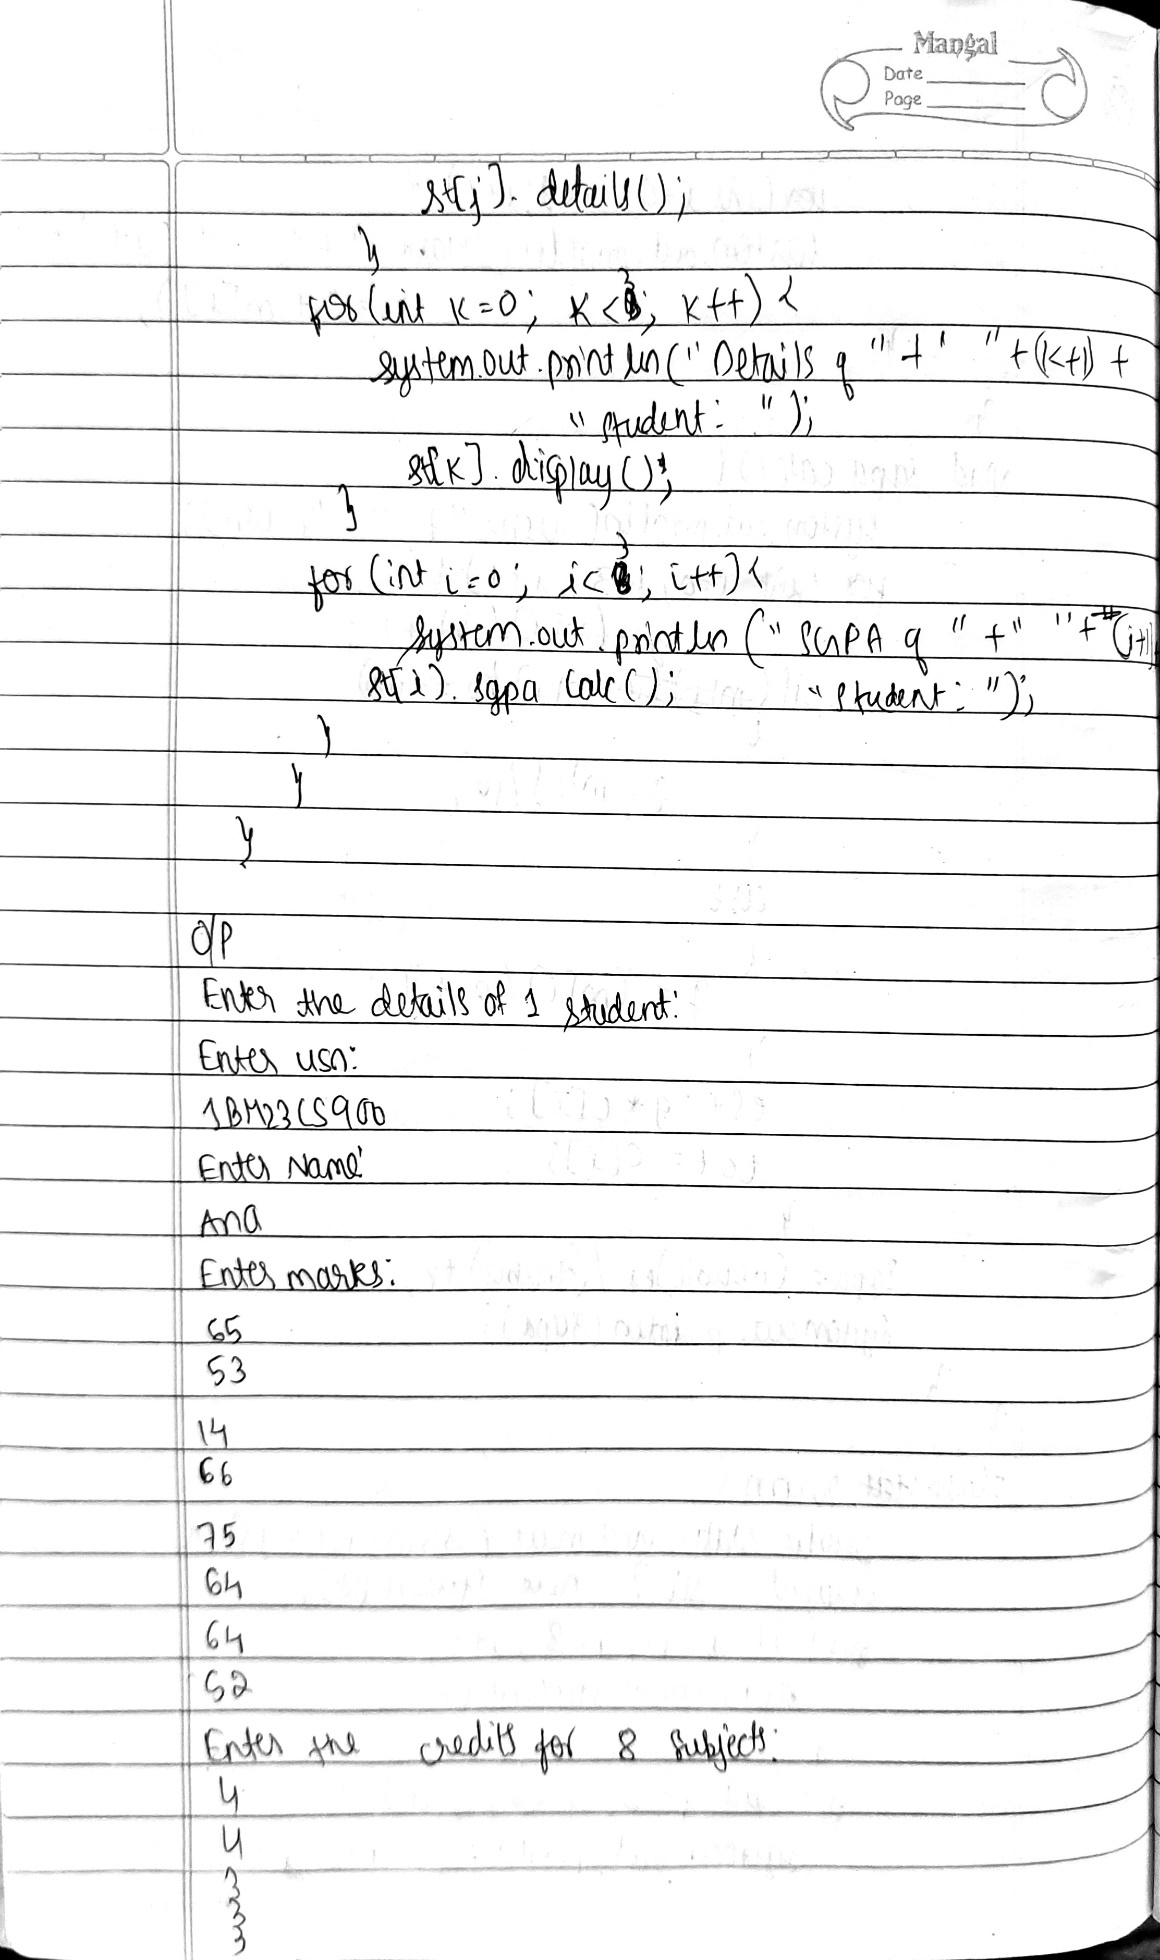 Mangal
Date
Page
st[j]. details();
}
for (int k=0; k<3; k++) {
system.out.println(" Details of " + " " + (k+1) +
" student: ");
st[k]. display();
}
for (int i=0; i<3; i++) {
system.out.println (" SGPA of " + " " + (i+1)
st[i]. sgpa Calc(); " student: ");
}
}
}
O/P
Enter the details of 1 student:
Enter usn:
1BM23CS900
Enter Name:
Ana
Enter marks:
65
53
14
66
75
64
64
52
Enter the credits for 8 subjects:
4
4
3
3
3